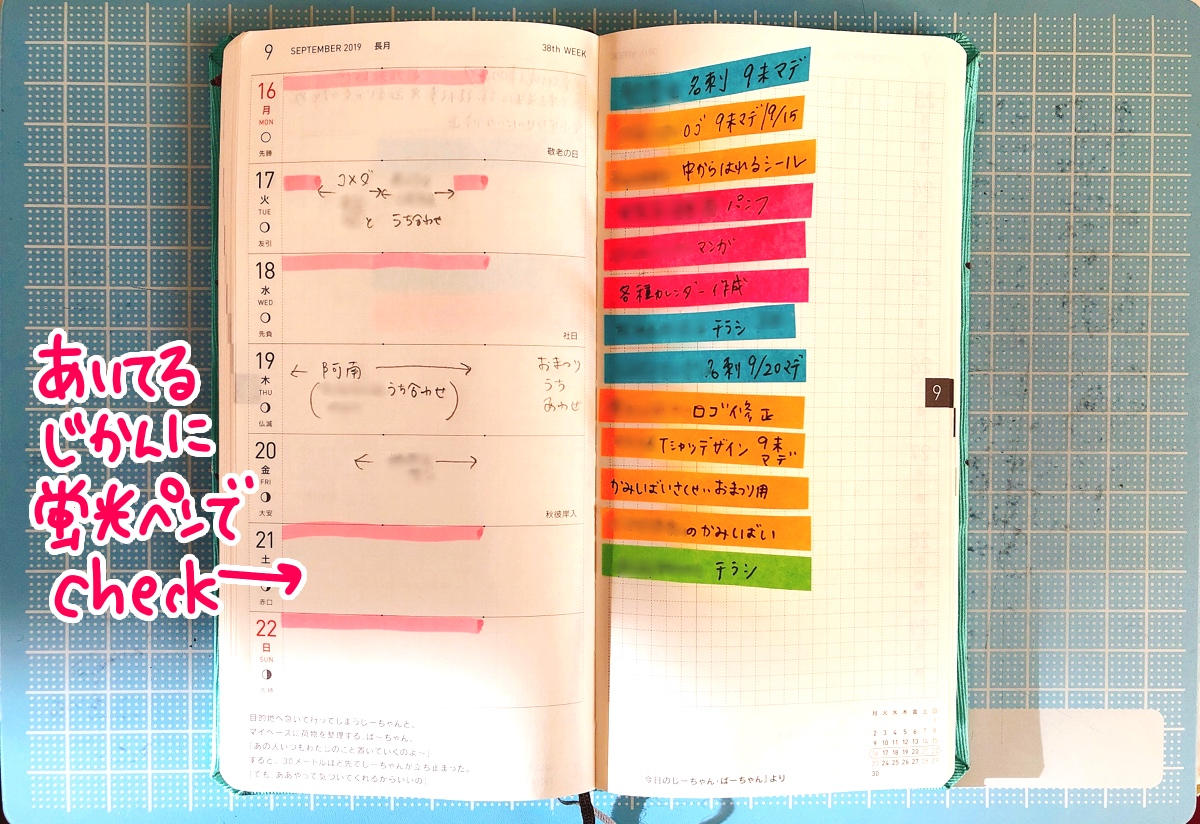 9 SEPTEMBER 2019 長月 38th WEEK
16
月
MON
先勝
敬老の日
17
火
TUE
友引
コメダ
と うち合わせ
18
水
WED
先負
社日
19
木
THU
仏滅
阿南
うち合わせ
おまつり
うち
あわせ
20
金
FRI
大安
秋彼岸入
21
土
赤口
22
日
SUN
目的地へ急いで行ってしまうじーちゃんと、
マイペースに荷物を整理する、ばーちゃん。
「あの人いつもわたしのこと置いていくのよ〜」
すると、30メートルほど先でじーちゃんが立ち止まった。
「でも、ああやって気づいてくれるからいいの」
名刺 9末マデ
ロゴ 9末マデ/9/15
中からはれるシール
パンフ
マンガ
各種カレンダー作成
チラシ
名刺 9/20マデ
ロゴ修正
Tシャツデザイン 9末
マデ
かみしばいさくせい おまつり用
のかみしばい
チラシ
9
月 火 水 木 金 土 日
1
2 3 4 5 6 7 8
9 10 11 12 13 14 15
16 17 18 19 20 21 22
23 24 25 26 27 28 29
30
今日のじーちゃん・ばーちゃん』より
あいてる
じかんに
蛍光ペンで
check→